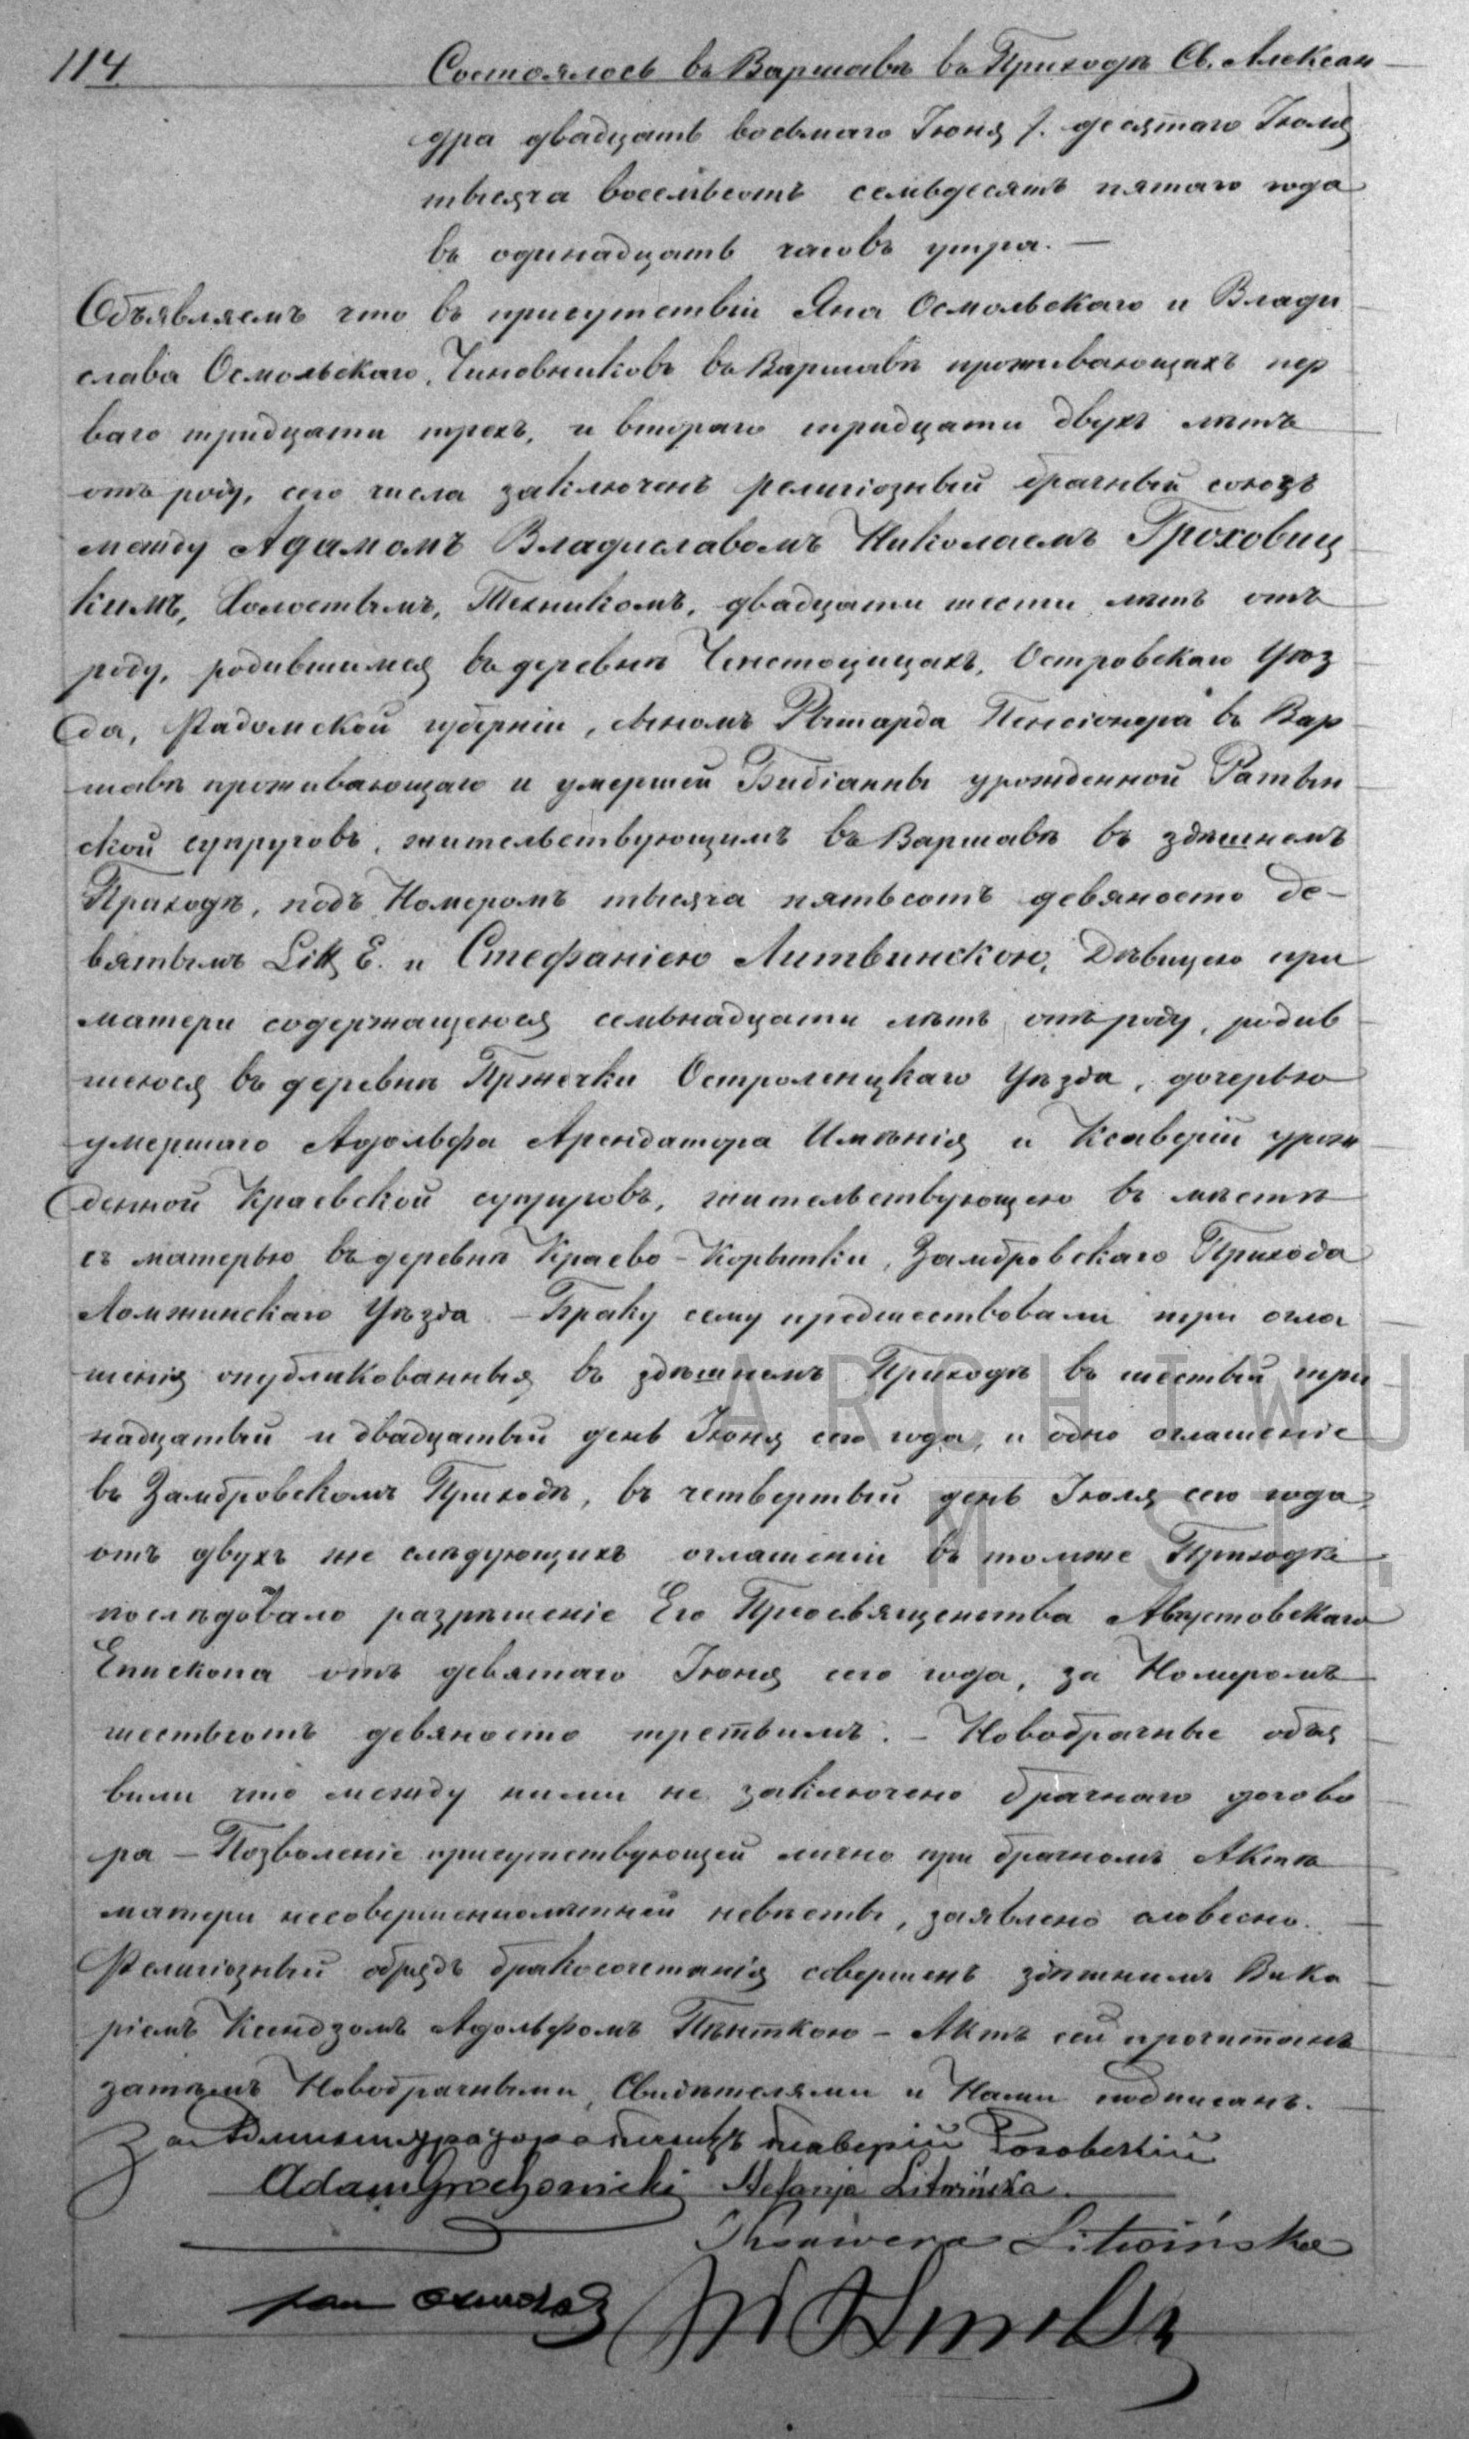 114 Состоялось въ Варшавѣ въ Приходѣ Св. Алексан
дра двадцать восьмаго Іюня /. десятаго Іюля
тысяча восемьсотъ семьдесятъ пятаго года
въ одинадцать часовъ утра. —
Объявляемъ что въ присутствіи Яна Осмольскаго и Влади
слава Осмольскаго, Чиновниковъ въ Варшавѣ проживающихъ пер
ваго тридцати трехъ, и втораго тридцати двухъ лѣтъ
отъ роду, сего числа заключенъ религіозный брачный союзъ
между Адамомъ Владиславомъ Николаемъ Гроховиц
кимъ, Холостымъ, Техникомъ, двадцати шести лѣтъ отъ
роду, родившимся въ деревнѣ Ченстоцицахъ, Островскаго Уѣз
да, Радомской губерніи, сыномъ Рышарда Пенсіонера въ Вар
шавѣ проживающаго и умершей Бибіанны урожденной Ратын
ской супруговъ, жительствующимъ въ Варшавѣ въ здѣшнемъ
Приходѣ, подъ Номеромъ тысяча пятьсотъ девяносто де-
вятымъ Litt E. и Стефаніею Литвинскою, Дѣвицею при
матери содержащеюся семьнадцати лѣтъ отъ роду, родив
шеюся въ деревнѣ Пржечки Остроленцкаго Уѣзда, дочерью
умершаго Адольфа Арендатора Имѣнія и Ксаверіи урож
денной Краевской супруговъ, жительствующею въ мѣстѣ
съ матерью въ деревнѣ Краево-Корытки, Замбровскаго Прихода
Ломжинскаго Уѣзда. — Браку сему предшествовали три огла
шенія опубликованныя въ здѣшнемъ Приходѣ въ шестый три
надцатый и двадцатый день Іюня сего года, и одно оглашеніе
въ Замбровскомъ Приходѣ, въ четвертый день Іюля сего года,
отъ двухъ же слѣдующихъ оглашеній въ томже Приходѣ
послѣдовало разрѣшеніе Его Преосвященства Августовскаго
Епископа отъ девятаго Іюня сего года, за Номеромъ
шестьсотъ девяносто третьимъ. — Новобрачные объя
вили что между ними не заключено брачнаго догово
ра — Позволеніе присутствующей лично при брачномъ Актѣ
матери несовершеннолѣтней невѣсты, заявлено словесно.
Религіозный обрядъ бракосочетанія совершенъ здѣшнимъ Вика
ріемъ Ксендзомъ Адольфомъ Пѣнткою — Актъ сей прочитанъ
затѣмъ Новобрачными, Свидѣтелями и Нами подписанъ.
За Администратора Ксаверій Роговскій
Adam Grochowicki Stefanja Litwińska
Ksawera Litwińska
Jan
ARCHIWU
M. ST.